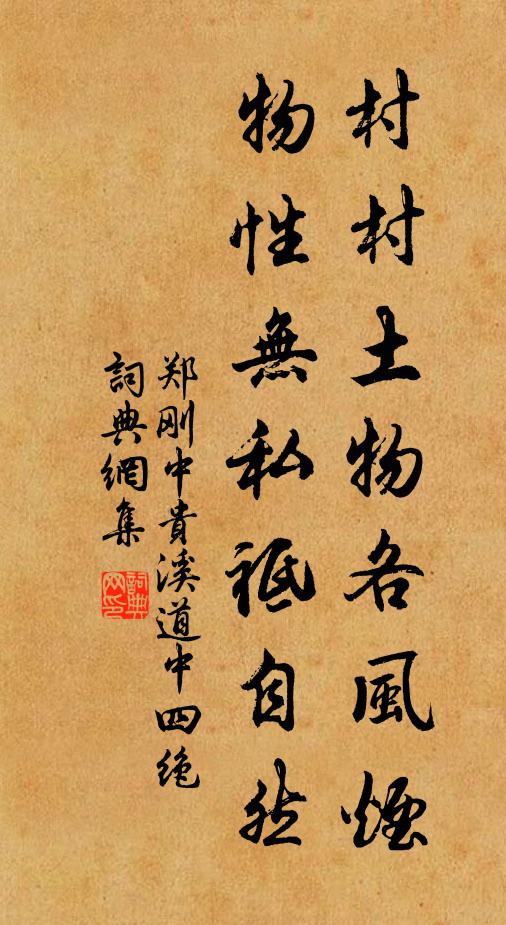 村村土物各風煙
物性無私祗自然
郑刚中貴溪道中四绝
詞典網集
詞典网印